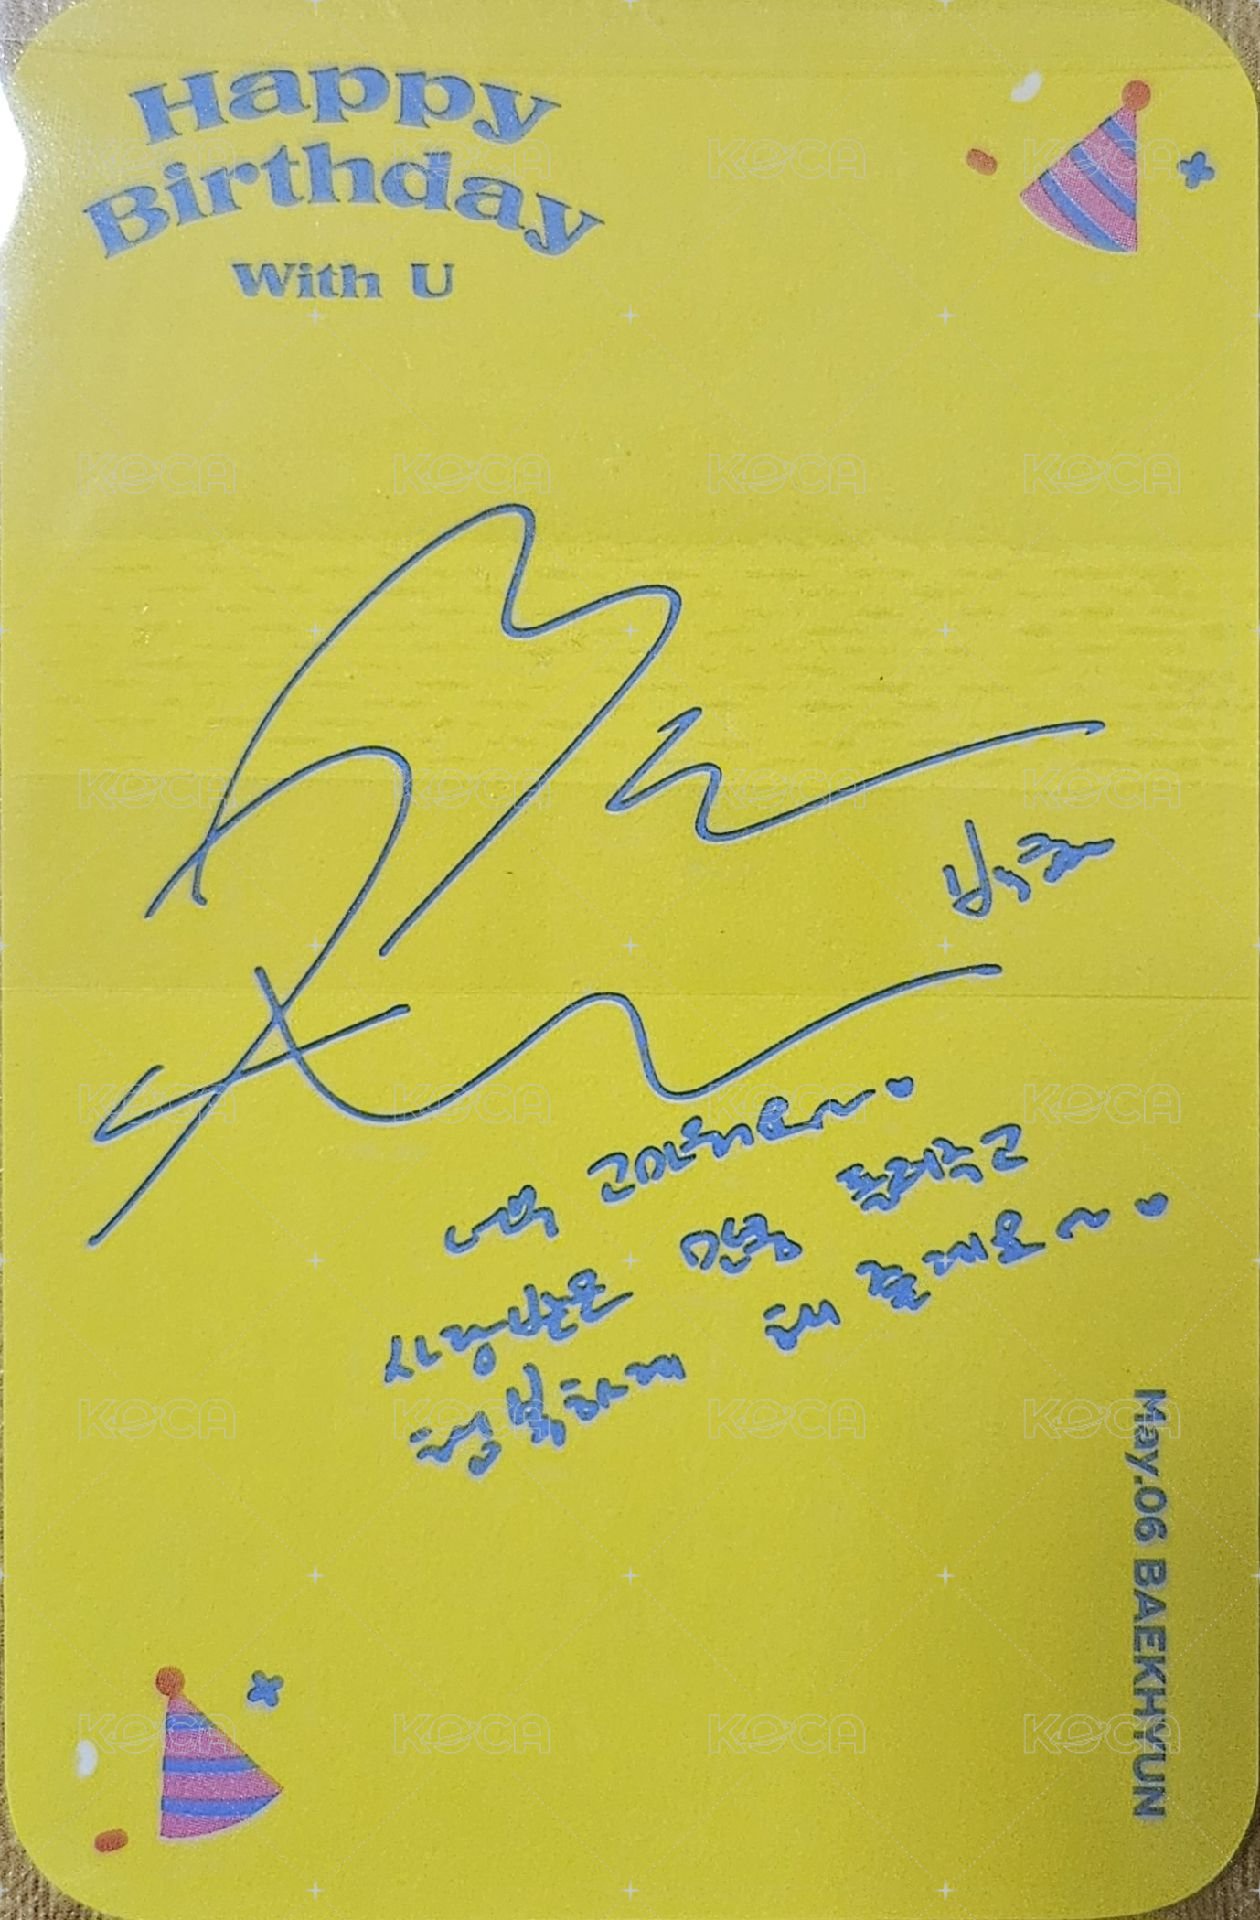 Happy
Birthday
With U
백현
너무 고마워요~♥
사랑받은 만큼 돌려주고
행복하게 해 줄게요~♥
May.06 BAEKHYUN
KOCA